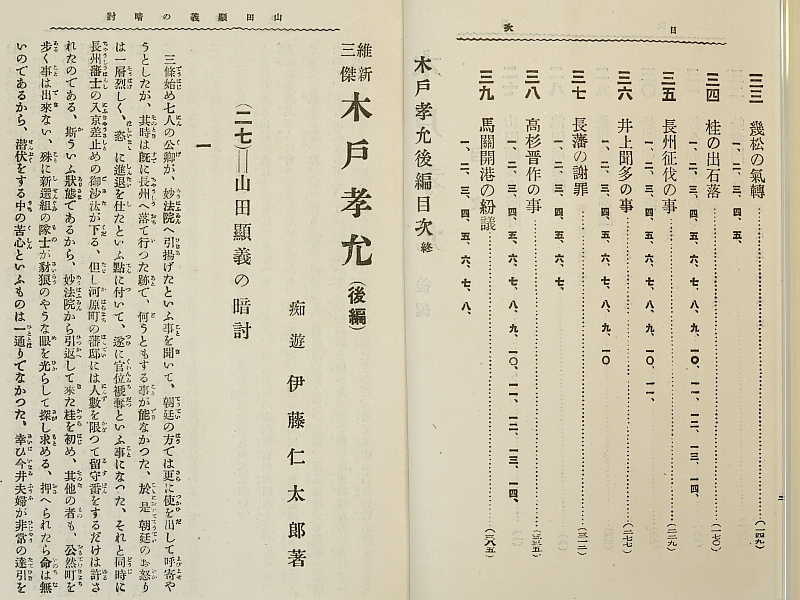 目次
三三 幾松の氣轉……(一四九)
一、二、三、四、五、
三四 桂の出石落……(一七〇)
一、二、三、四、五、六、七、八、九、一〇、一一、一二、一三、一四、
三五 長州征伐の事……(二二九)
一、二、三、四、五、六、七、八、九、一〇、一一、
三六 井上聞多の事……(二七七)
一、二、三、四、五、六、七、八、九、一〇
三七 長藩の謝罪……(三一二)
一、二、三、四、五、六、七、
三八 高杉晋作の事……(三三五)
一、二、三、四、五、六、七、八、九、一〇、一一、一二、一三、一四、
三九 馬關開港の紛議……(三八五)
一、二、三、四、五、六、七、八、
木戸孝允後編目次 終
二
山田顯義の暗討
維新三傑 木戸孝允(後編)
痴遊 伊藤仁太郎著
(二七)━山田顯義の暗討
一
三條始め七人の公卿が、妙法院へ引揚げたといふ事を聞いて、朝廷の方では更に使を出して呼寄や
うとしたが、其時は既に長州へ落て行つた跡で、何うともする事が能なかつた、於是朝廷のお怒り
は一層烈しく、恣に進退を仕たといふ點に付いて、遂に官位褫奪といふ事になつた、それと同時に
長州藩士の入京差止めの御沙汰が下る、但し河原町の藩邸には人數を限つて留守番をするだけは許さ
れたのである、斯ういふ狀態であるから、妙法院から引返して來た桂を初め、其他の者も、公然町を
歩く事は出來ない、殊に新選組の隊士が豺狼のやうな眼を光らして探し求める、押へられたら命は無
いのであるから、潜伏をする中の苦心といふものは一通りでなかつた、幸ひ今井夫婦が非常の達引を